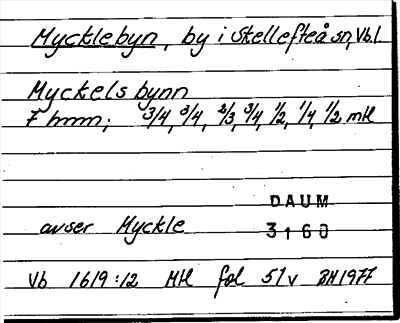 Mycklebyn, by i Skellefteå sn, Vb.l.
Myckels bynn
7 hmn; 3/4, 3/4, 2/3, 3/4, 1/2, 1/4, 1/2 mtl
DAUM
avser Myckle
3160
Vb 1619:12 Mtl fol 51v BH1977